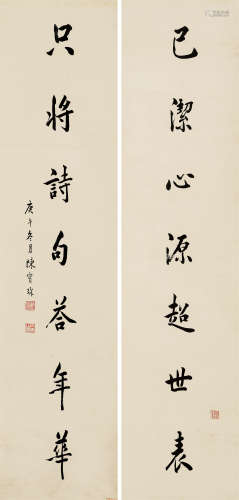 已潔心源超世表
只將詩句答年華
庚午冬月陳寶琛